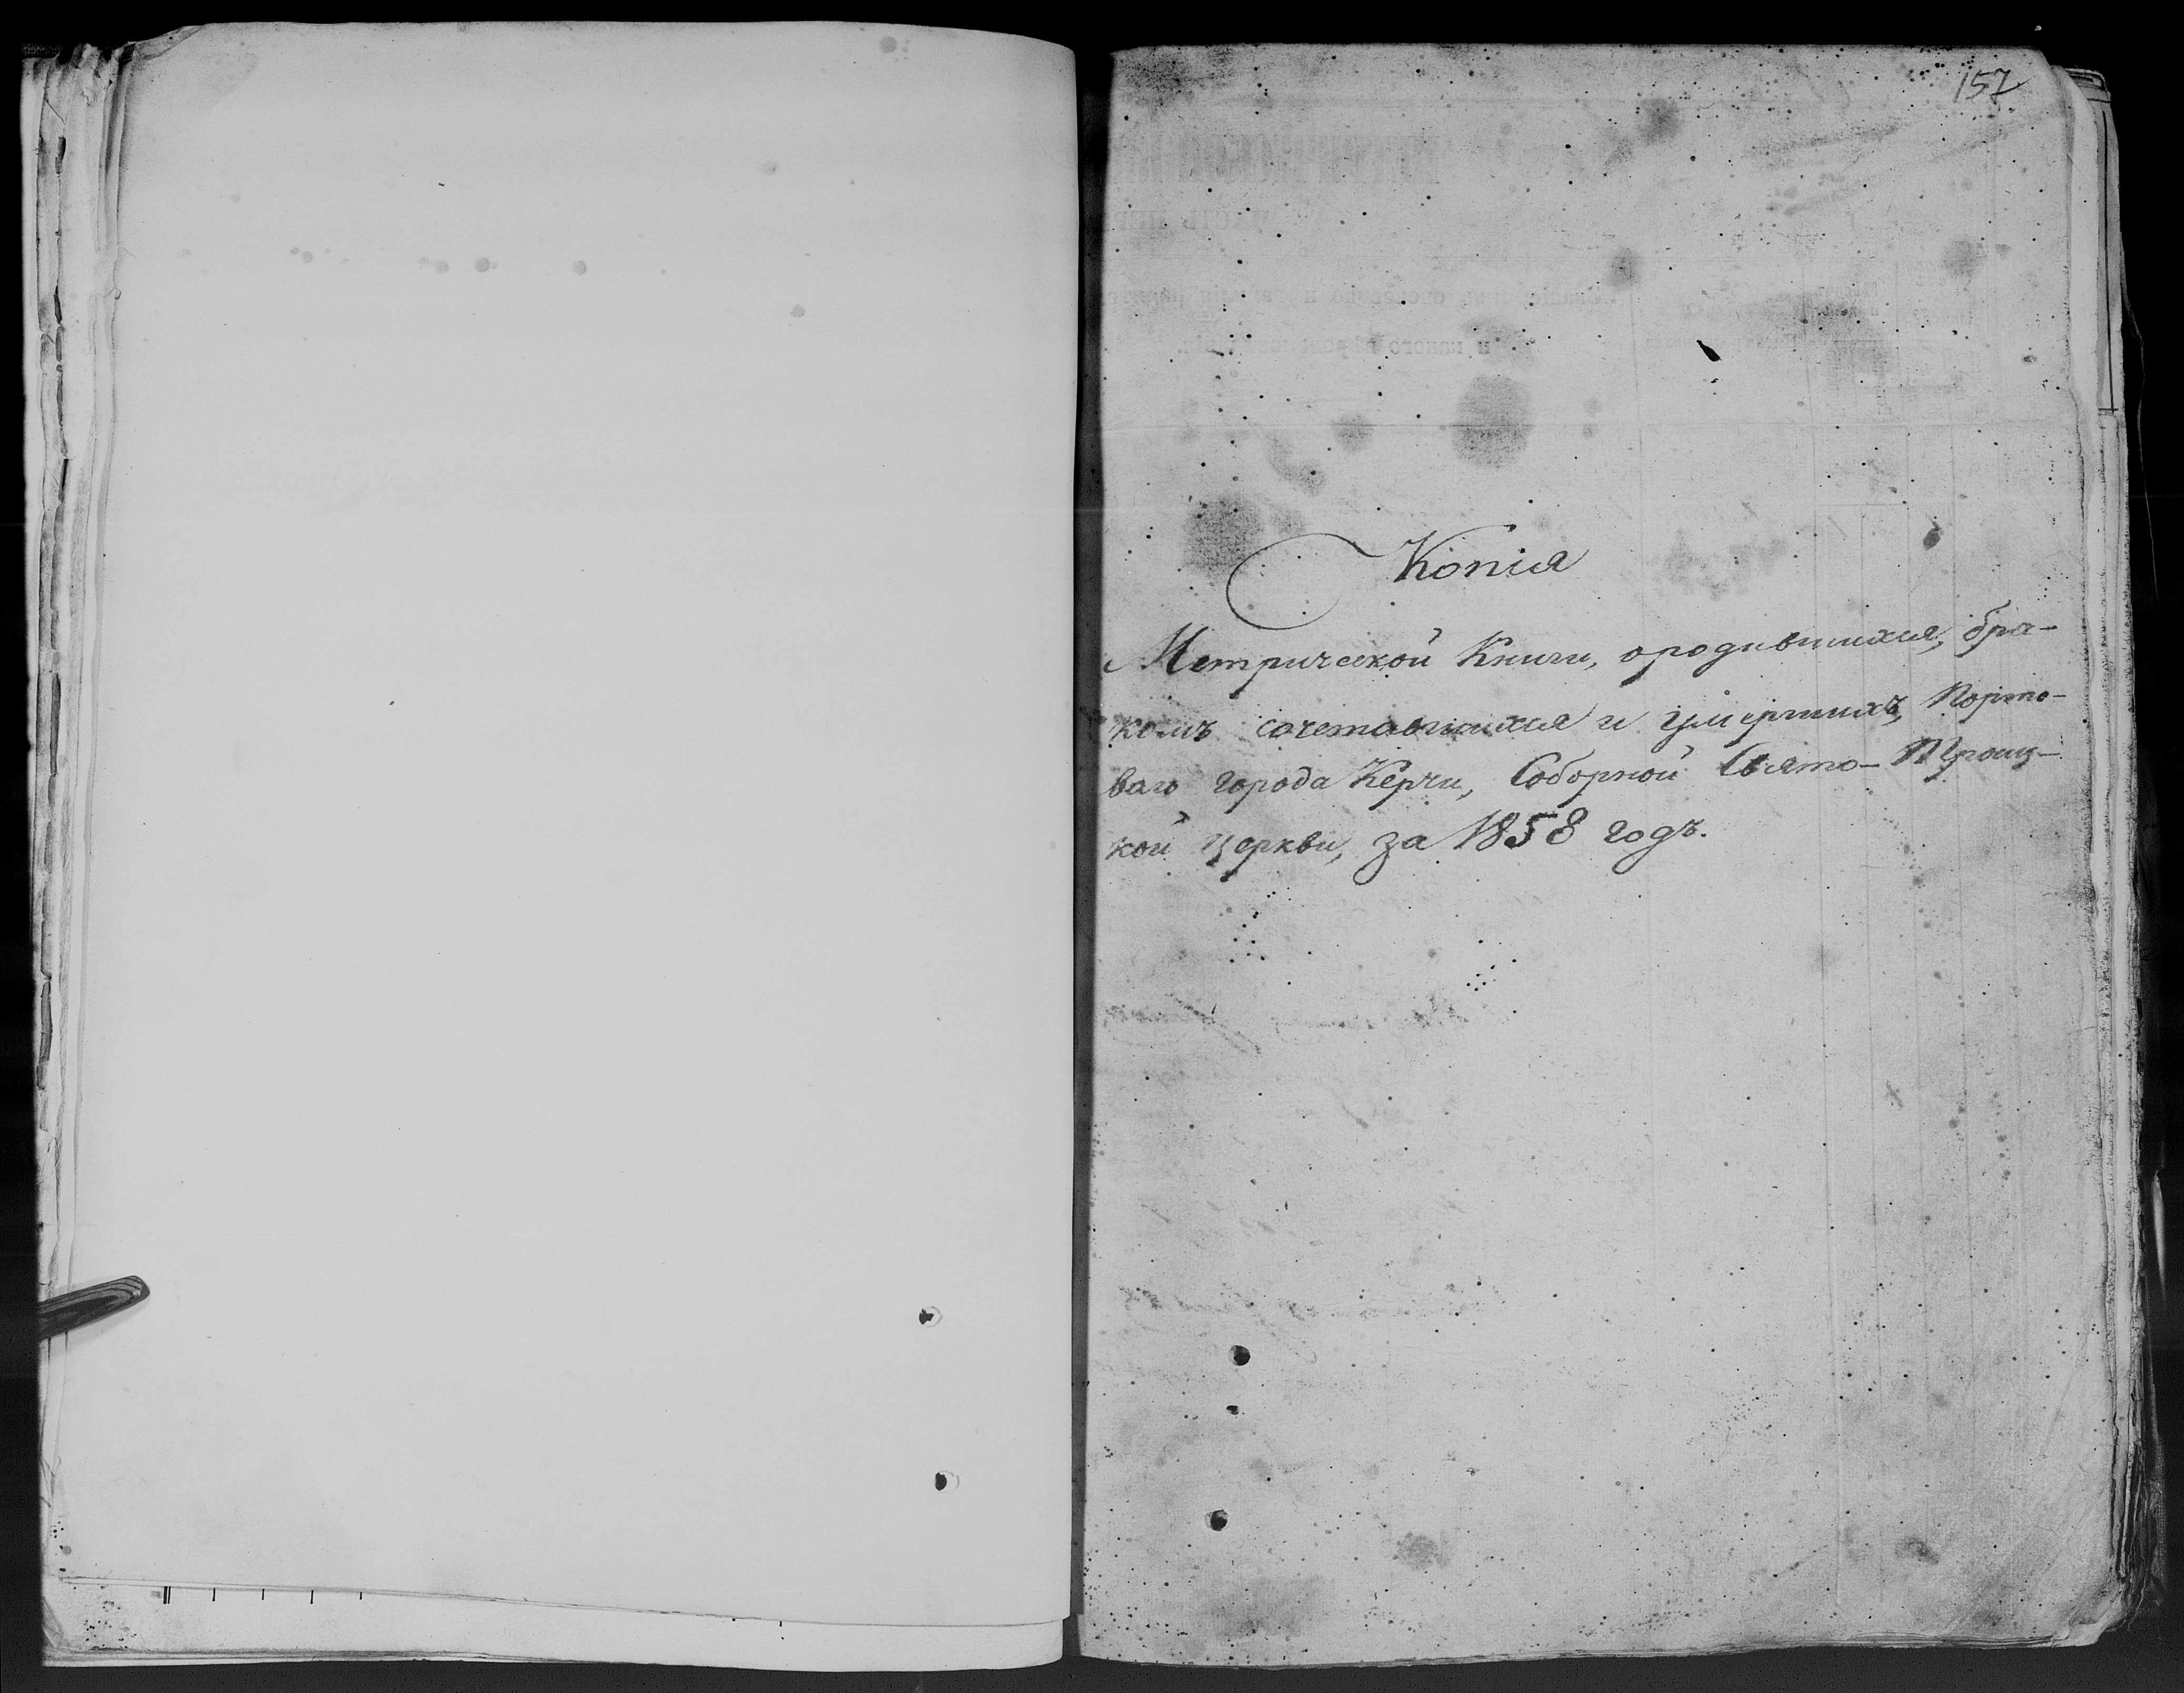 157
Копія
Метрической Книги, ородившихся, бра-
комъ сочетавшихся и умершихъ, Порто-
ваго города Керчи, Соборной Свято-Троиц-
кой Церкви, за 1858 годъ.